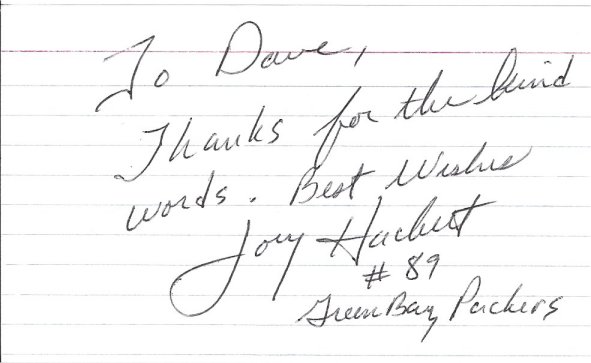 To Dave,
Thanks for the kind
words. Best Wishes
Joey Hackett
# 89
Green Bay Packers